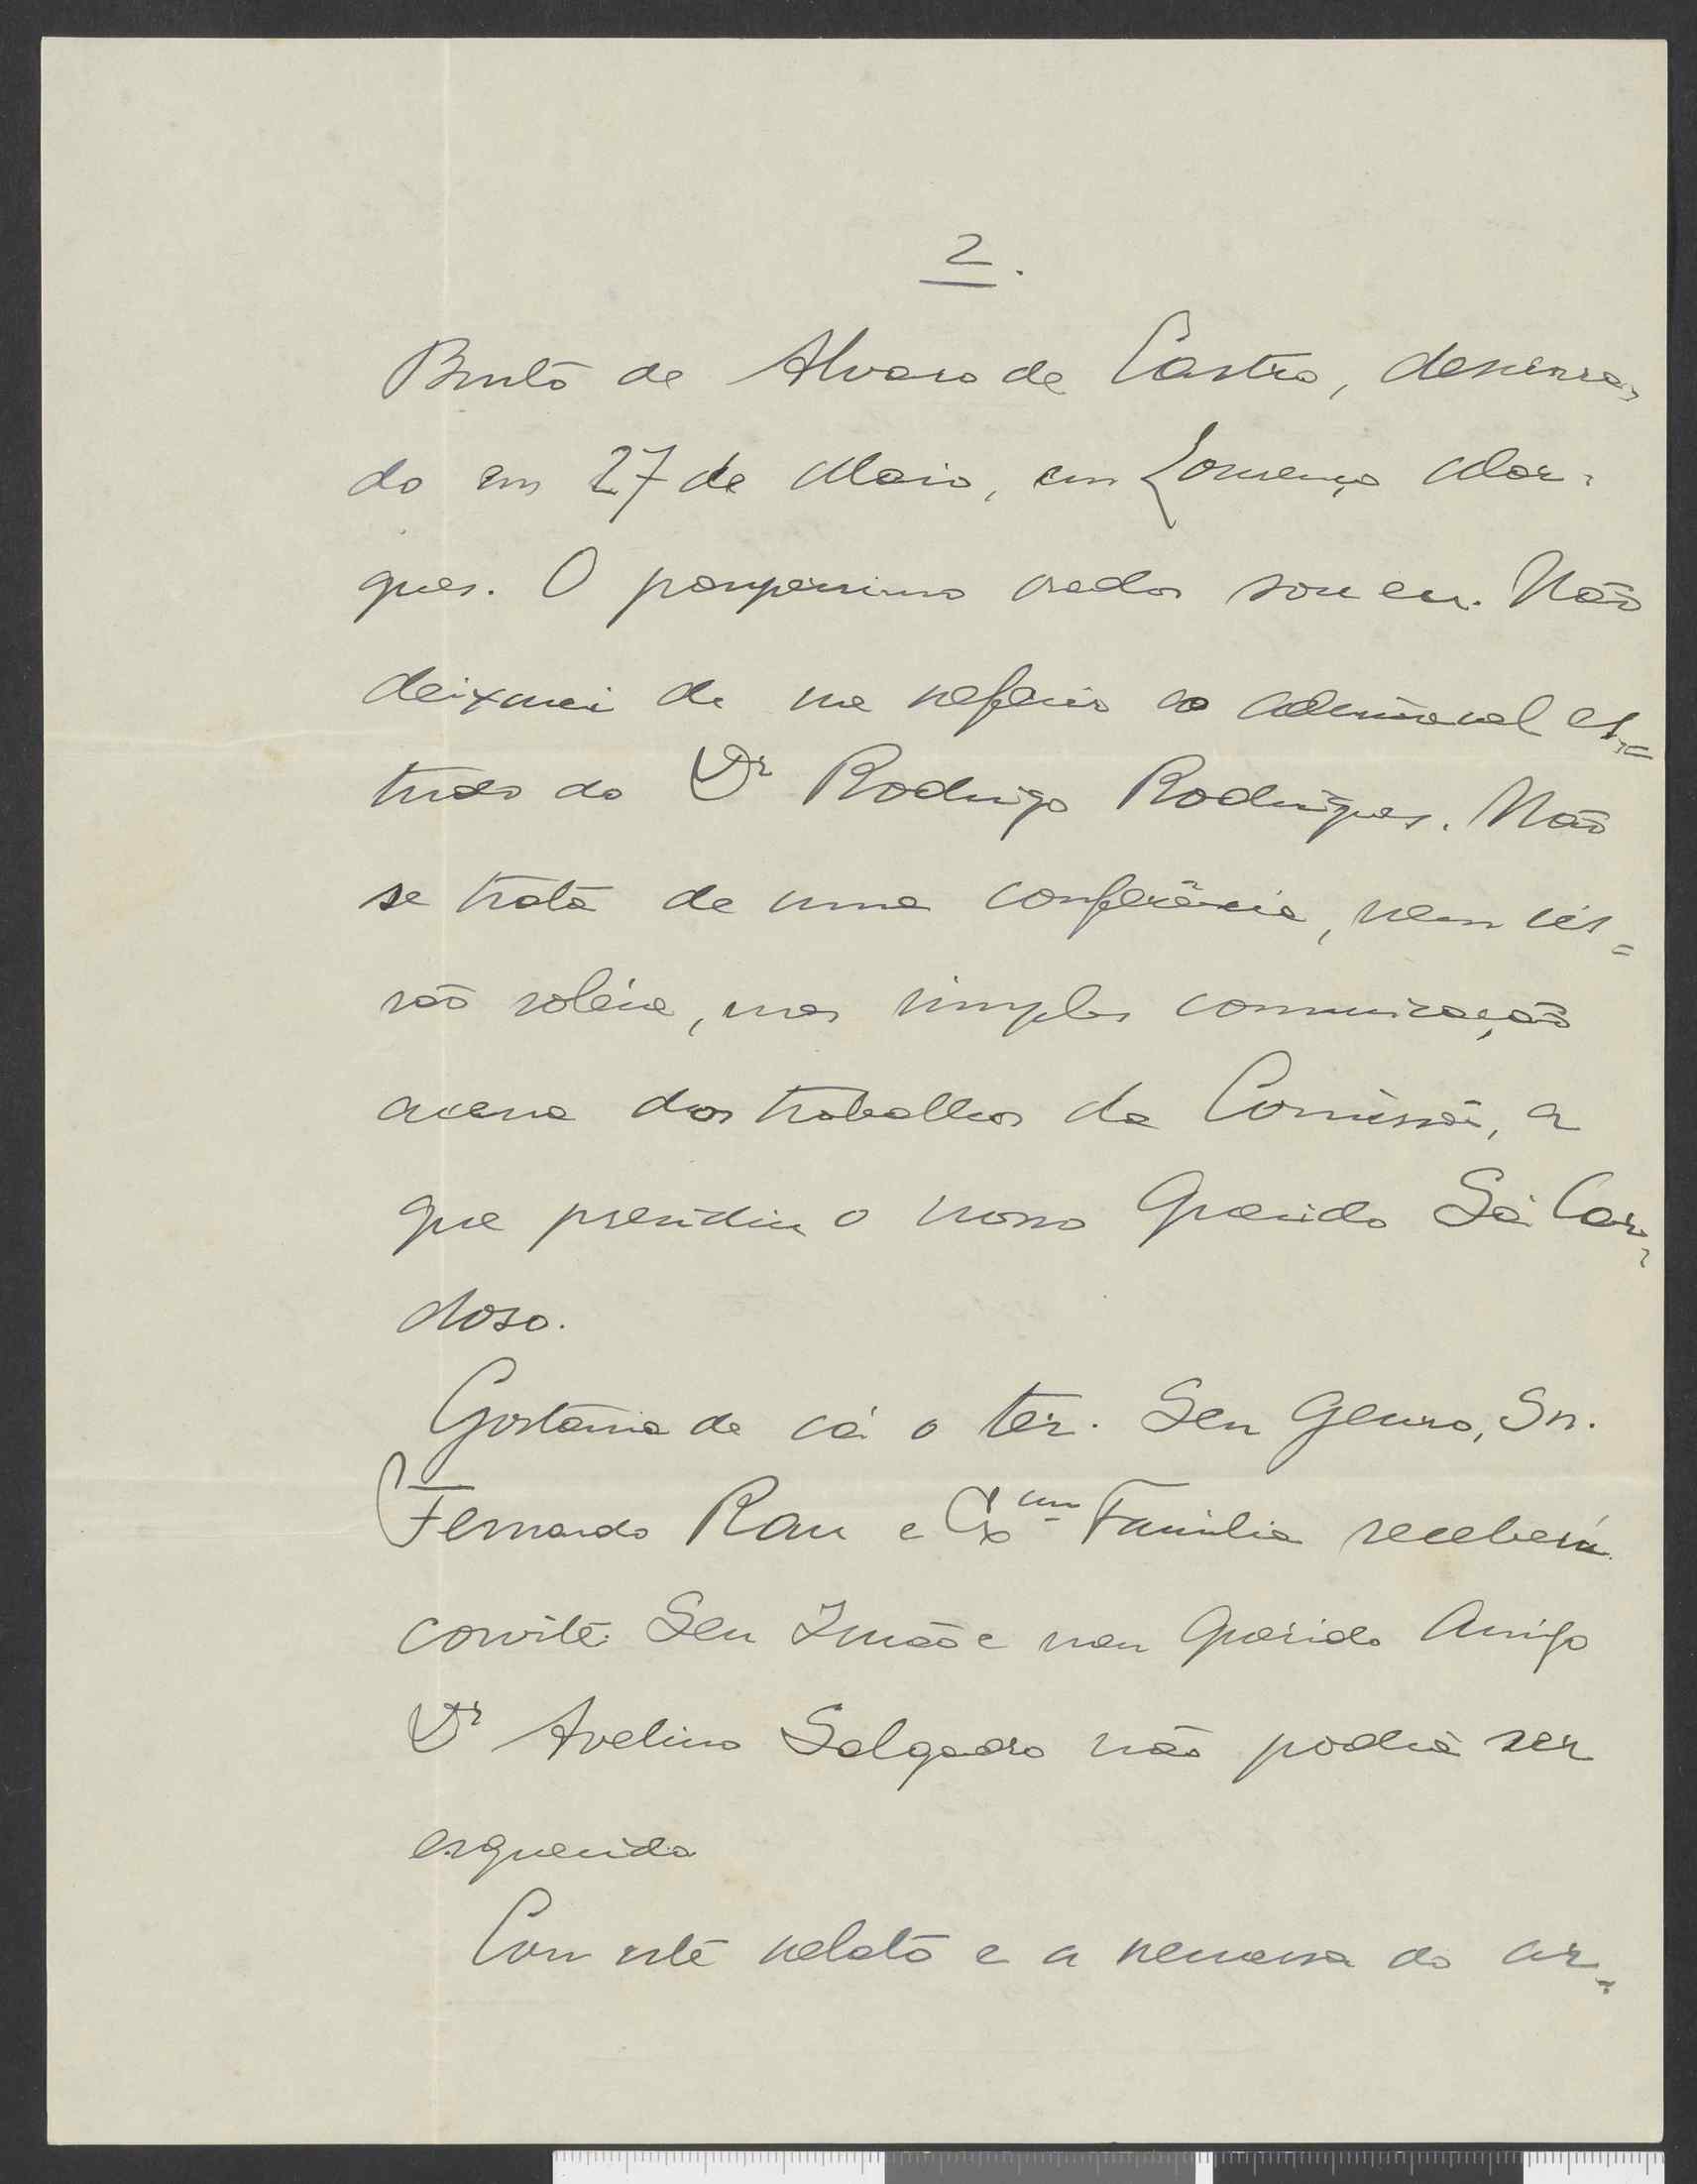 2.
Busto de Alvaro de Castro, descerra-
do em 27 de Maio, em Lourenço Mar-
ques. O paupérrimo orador sou eu. Não
deixarei de me referir ao admiravel es=
tudo do Dr Rodrigo Rodrigues. Não
se trata de uma conferência, nem ses=
são soléne, mas simples comunicação
acerca dos trabalhos da Comissão, a
que presidiu o nosso Querido Sá Car-
doso.
Gostaria de cá o ter. Seu Genro, Sr.
Fernando Rau e Exma Familia receberá
convite. Seu Irmão e meu Querido Amigo
Dr Avelino Salgado não podia ser
esquecido
Com este relato e a remessa do ar-